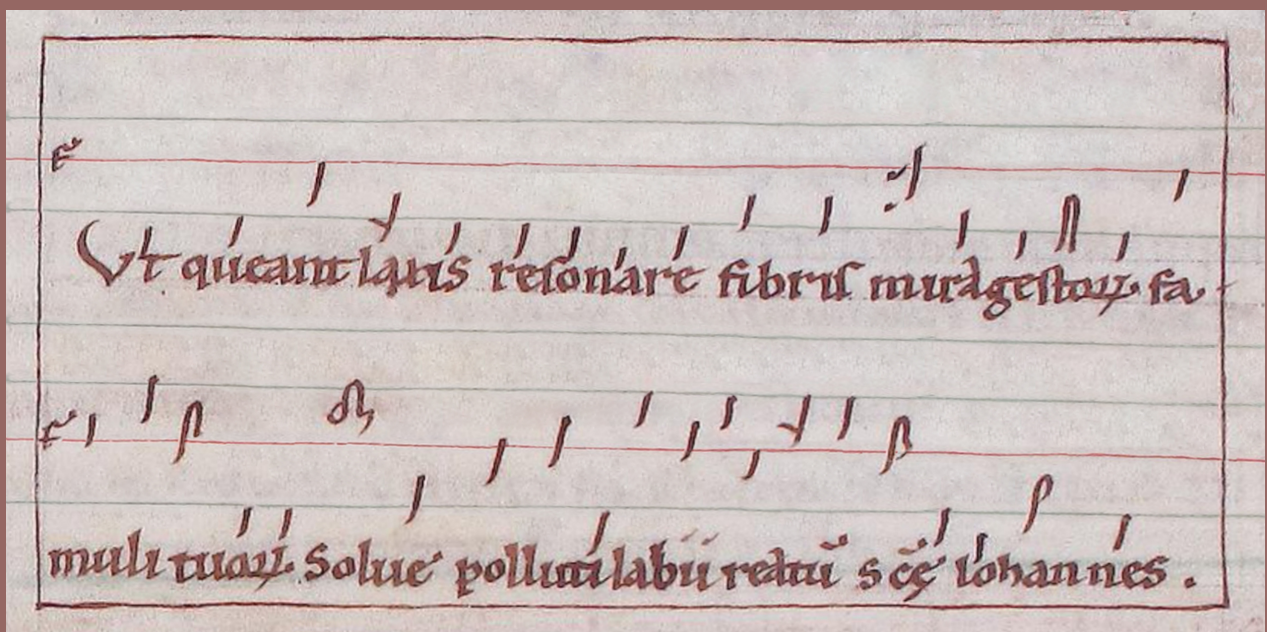 F
Vt queant laxis resonare fibris mira gestoꝝ fa-
F
muli tuoꝝ. Solue polluti labii reatū scē iohannes.